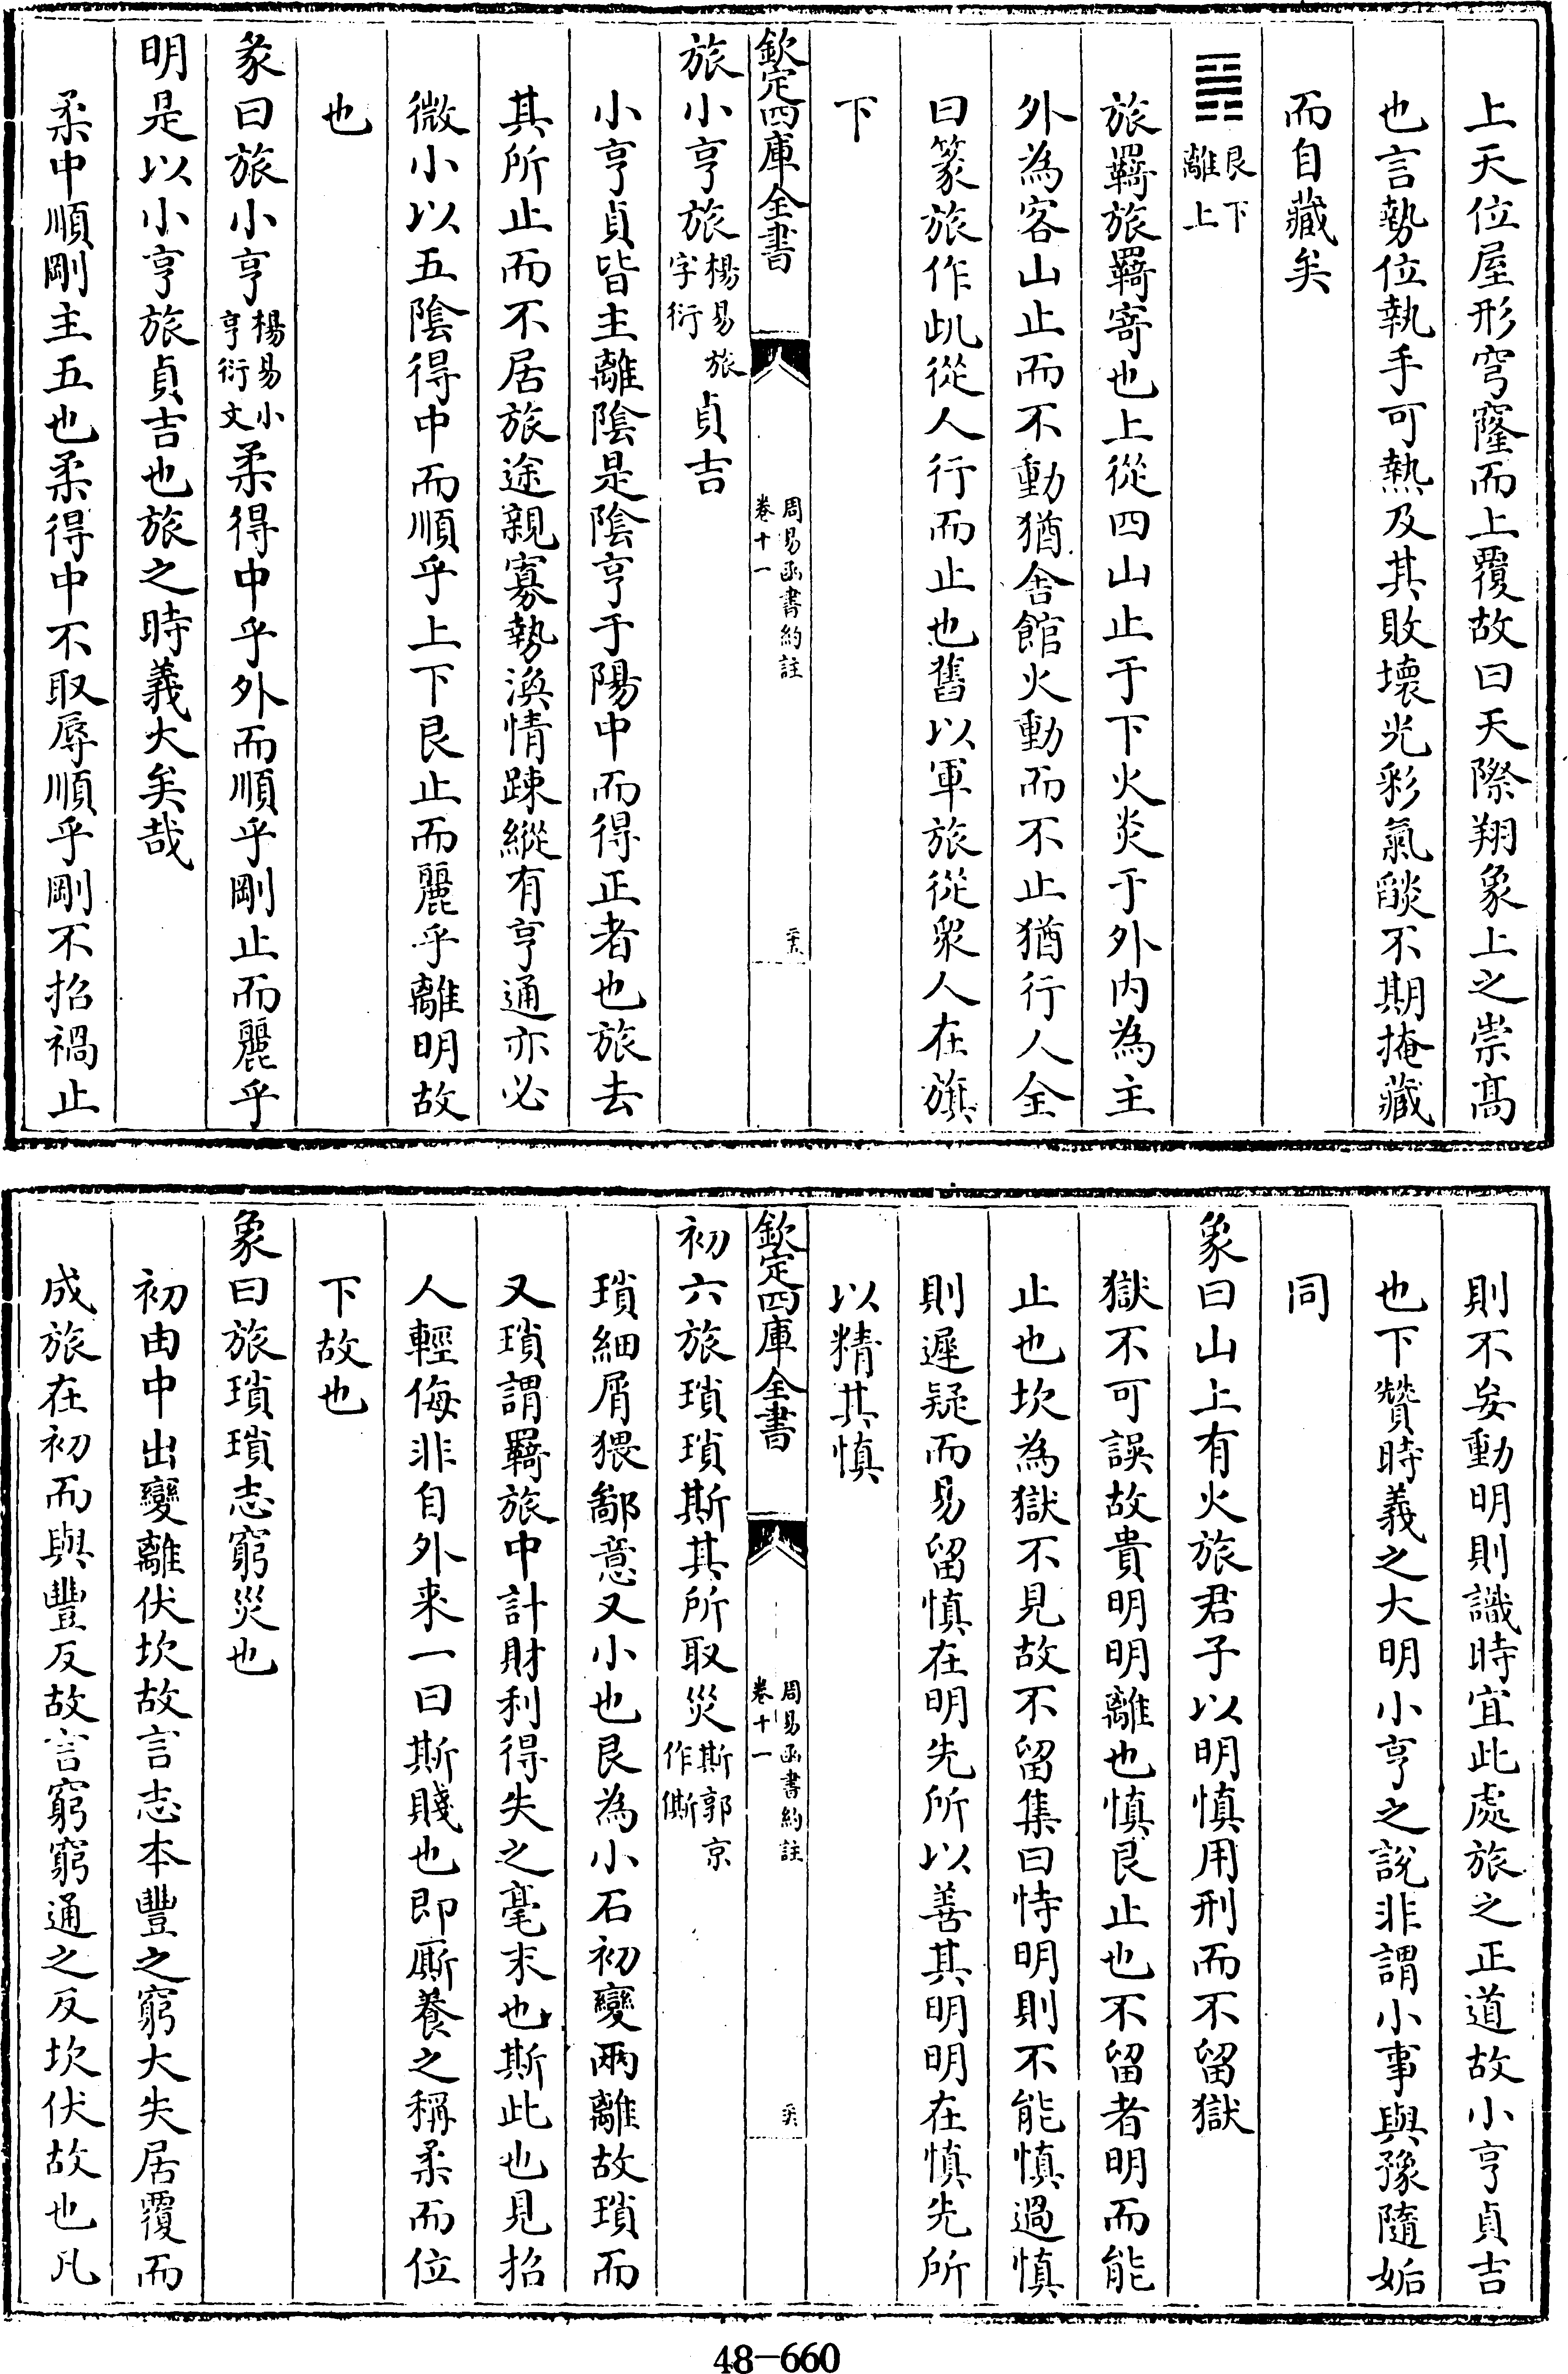 上天位屋形穹窿而上覆故曰天際翔象上之崇高
也言勢位執手可熱及其敗壞光彩氣燄不期掩藏
而自藏矣
䷷艮下離上
旅羇旅羇寄也上從四山止于下火炎于外内為主
外為客山止而不動猶舎館火動而不止猶行人全
曰篆旅作㫃從人行而止也舊以軍旅從衆人在旗
下
欽定四庫全書
周易函書約註
卷十一
旅小亨旅楊易旅字衍貞吉
小亨貞皆主離陰是陰亨于陽中而得正者也旅去
其所止而不居旅途親寡勢渙情踈縱有亨通亦必
微小以五陰得中而順乎上下艮止而麗乎離明故
也
彖曰旅小亨楊易小亨衍文柔得中乎外而順乎剛止而麗乎
明是以小亨旅貞吉也旅之時義大矣哉
柔中順剛主五也柔得中不取辱順乎剛不招禍止
則不妄動明則識時宜此處旅之正道故小亨貞吉
也下贊時義之大明小亨之説非謂小事與豫隨姤
同
象曰山上有火旅君子以明慎用刑而不留獄
獄不可誤故貴明明離也慎艮止也不留者明而能
止也坎為獄不見故不留集曰恃明則不能慎過慎
則遲疑而易留慎在明先所以善其明明在慎先所
以精其慎
欽定四庫全書
周易函書約註
卷十一
初六旅瑣瑣斯其所取災斯郭京作㒋
瑣細屑猥鄙意又小也艮為小石初變兩離故瑣而
又瑣謂羇旅中計財利得失之毫末也斯此也見招
人輕侮非自外来一曰斯賤也即厮養之稱柔而位
下故也
象曰旅瑣瑣志窮災也
初由中出變離伏坎故言志本豐之窮大失居覆而
成旅在初而與豐反故言窮窮通之反坎伏故也凡
48-660